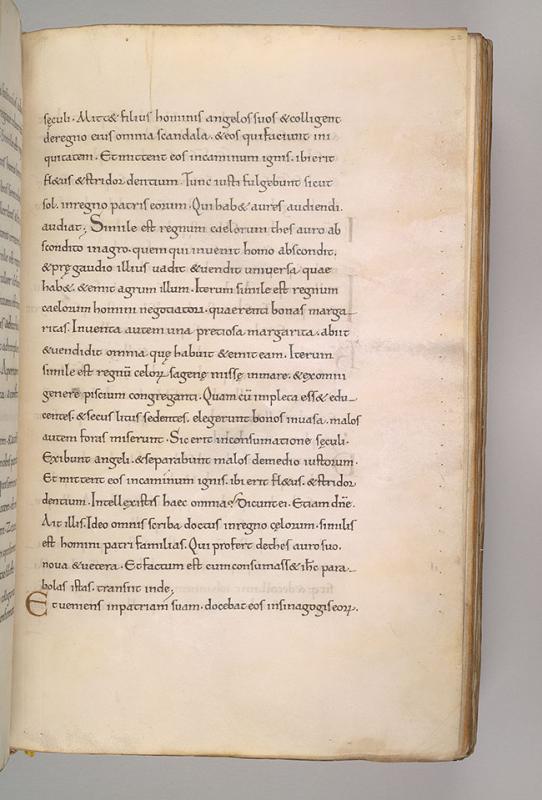 22
sęculi. Mitt& filius hominis angelos suos & colligent
deregno eius omnia scandala. & eos qui faciunt ini
quitatem. Et mittent eos incaminum ignis. ibi erit
fl&us & stridor dentium. Tunc iusti fulgebunt sicut
sol. inregno patris eorum. Qui hab& aures audiendi.
audiat; Simile est regnum caelorum thesauro ab
scondito inagro. quem qui inuenit homo abscondit.
& prę gaudio illius uadit & uendit uniuersa quae
hab&. & emit agrum illum. Iterum simile est regnum
caelorum homini negotiatori. quaerenti bonas marga
ritas. Inuenta autem una preciosa margarita. abiit
& uendidit omnia quę habuit & emit eam. Iterum
simile est regnū celorꝝ sagenę missę inmare. & exomni
genere piscium congreganti. Quam cū impleta ess& edu
centes. & secus litus sedentes. elegerunt bonos inuasa. malos
autem foras miserunt. Sic erit inconsumatione sęculi.
Exibunt angeli. & separabunt malos demedio iustorum.
Et mittent eos incaminum ignis. ibi erit fl&us. & stridor
dentium. Intellexistis haec omnia? Dicunt ei. Etiam dn̄e.
Ait illis. Ideo omnis scriba doctus inregno cęlorum. similis
est homini patri familias. Qui profert dethesauro suo.
noua & uetera. Et factum est cum consumass& ih̄c para
bolas istas. transiit inde;
Et ueniens inpatriam suam. docebat eos insinagogis eorꝝ.